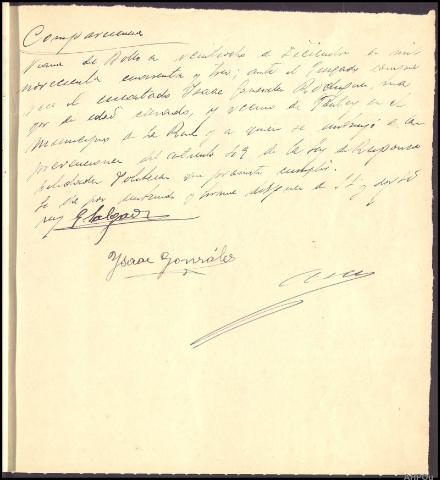 Comparecencia
Viana de Bollo a veintiocho de Diciembre de mil
novecientos cuarenta y tres; ante el Juzgado compare
ce el encartado Isaac González Rodríguez, ma
yor de edad casado, y vecino de en el
Municipio de la Rua y a quien se instruyó de las
prevenciones del artículo 49 de la Ley de Responsa
bilidades Políticas que prometió cumplir.
Se da por enterado y firma después de S.S. y doy fé
Ysaac Gonzáles
AHPOu